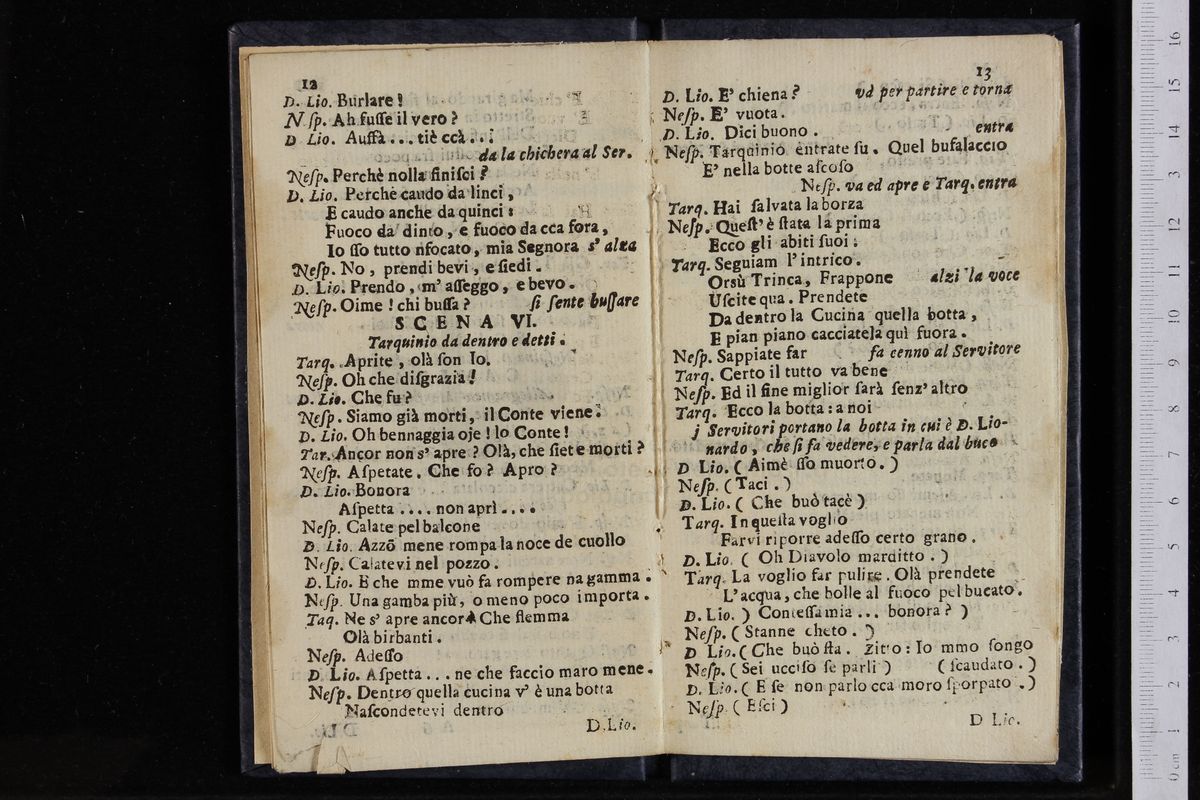 12
D. Lio. Burlare!
N sp. Ah fusse il vero?
D Lio. Auffà... tiè ccà...
da la chichera al Ser.
Nesp. Perchè nolla finisci?
D. Lio. Perchè caudo da linci,
E caudo anche da quinci:
Fuoco da dinto, e fuoco da cca fora,
Io sso tutto nfocato, mia Segnora s' alza
Nesp. No, prendi bevi, e siedi.
D. Lio. Prendo, m' asseggo, e bevo.
Nesp. Oime! chi bussa? si sente bussare
SCENA VI.
Tarquinio da dentro e detti.
Tarq. Aprite, olà son Io.
Nesp. Oh che disgrazia!
D. Lio. Che fu?
Nesp. Siamo già morti, il Conte viene.
D. Lio. Oh bennaggia oje! lo Conte!
Tar. Ancor non s' apre? Olà, che siete morti?
Nesp. Aspetate. Che fo? Apro?
D. Lio. Bonora
Aspetta .... non aprì ....
Nesp. Calate pel balcone
D. Lio. Azzò mene rompa la noce de cuollo
Nesp. Calatevi nel pozzo.
D. Lio. E che mme vuò fa rompere na gamma.
Nesp. Una gamba più, o meno poco importa.
Taq. Ne s' apre ancor? Che flemma
Olà birbanti.
Nesp. Adesso
D. Lio. Aspetta... ne che faccio maro mene.
Nesp. Dentro quella cucina v' è una botta
Nascondetevi dentro
D. Lio.
13
D. Lio. E' chiena? và per partire e torna
Nesp. E' vuota.
D. Lio. Dici buono. entra
Nesp. Tarquinio entrate su. Quel bufalaccio
E' nella botte ascoso
Nesp. va ed apre e Tarq. entra
Tarq. Hai salvata la borza
Nesp. Quest' è stata la prima
Ecco gli abiti suoi.
Tarq. Seguiam l' intrico.
Orsù Trinca, Frappone alzi la voce
Uscite qua. Prendete
Da dentro la Cucina quella botta,
E pian piano cacciatela quì fuora.
Nesp. Sappiate far fa cenno al Servitore
Tarq. Certo il tutto va bene
Nesp. Ed il fine miglior sarà senz' altro
Tarq. Ecco la botta: a noi
j Servitori portano la botta in cui è D. Lio-
nardo, che si fa vedere, e parla dal buco
D Lio. (Aimè sso muorto.)
Nesp. (Taci.)
D. Lio. (Che buò tacè)
Tarq. In questa voglio
Farvi riporre adesso certo grano.
D. Lio. (Oh Diavolo marditto.)
Tarq. La voglio far pulire. Olà prendete
L'acqua, che bolle al fuoco pel bucato.
D. Lio. ) Contessa mia... bonora? )
Nesp. (Stanne cheto.)
D Lio. (Che buò sta. Zitto: Io mmo songo
Nesp. (Sei ucciso se parli) (scaudato.)
D. Lio. (E se non parlo cca moro sporpato.)
Nesp. (Esci)
D Lio.